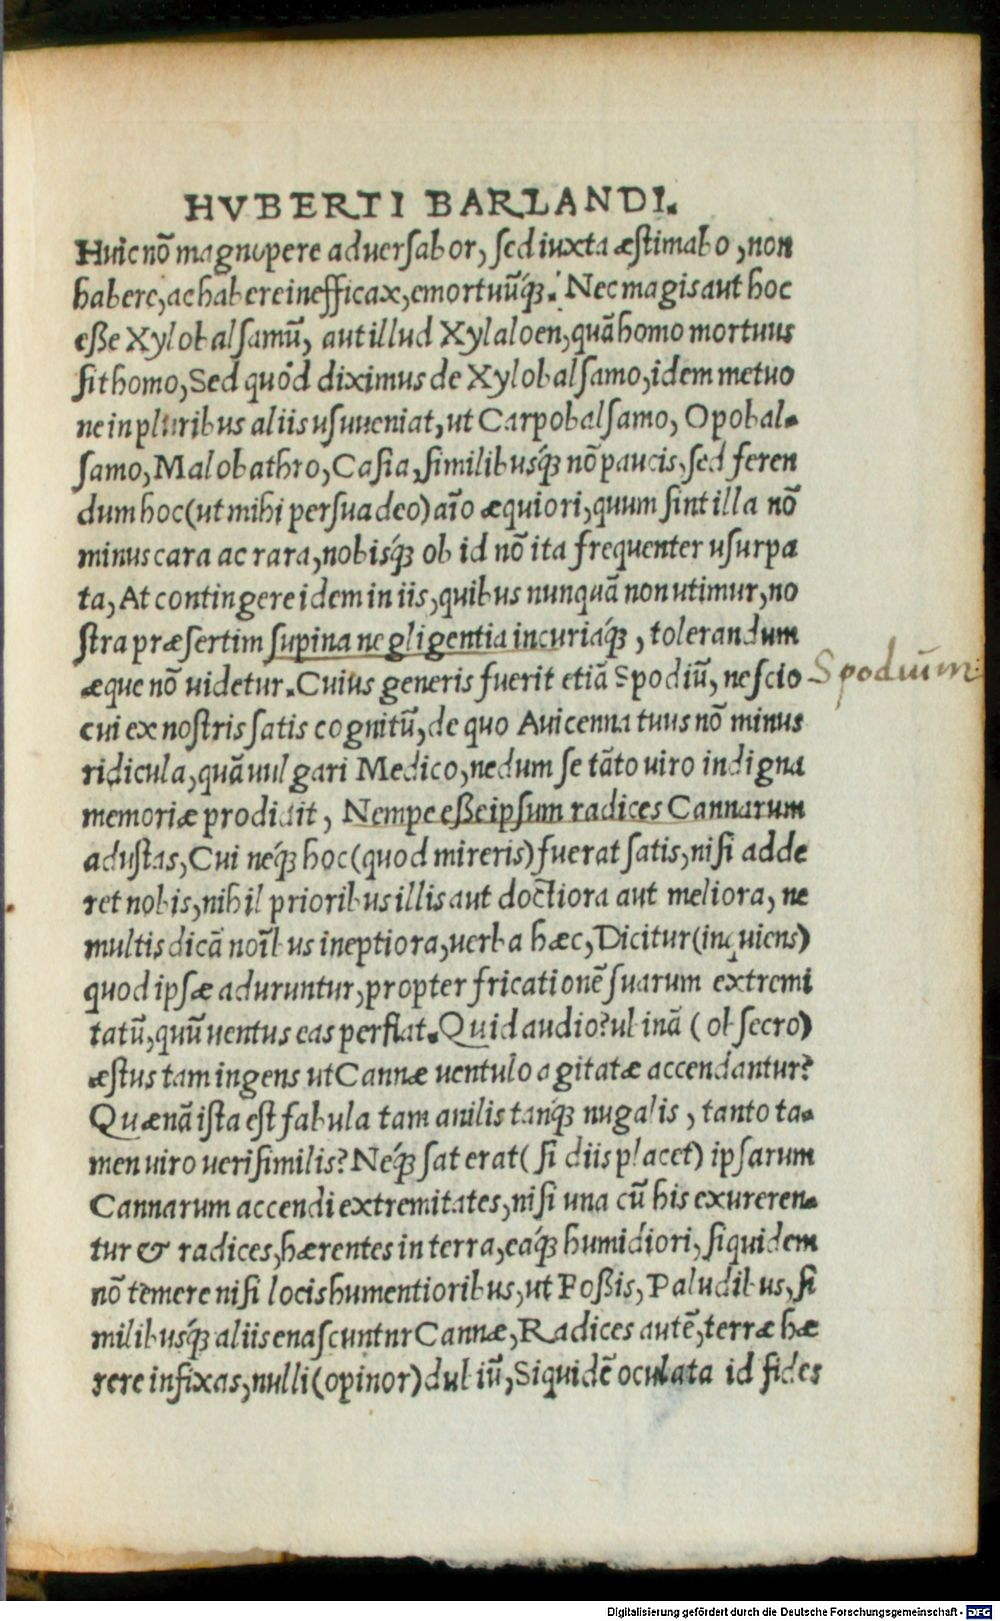 HVBERTI BARLANDI.
Huic nõ magnopere adversabor, sed iuxta æstimabo, non
habere, ac habere inefficax, emortuũq́;. Nec magis aut hoc
esse Xylobalsamũ, aut illud Xylaloen, quã homo mortuus
sit homo, Sed quòd diximus de Xylobalsamo, idem metuo
ne in pluribus aliis usuveniat, ut Carpobalsamo, Opobal-
samo, Malobathro, Casia, similibusq́; nõ paucis, sed feren
dum hoc (ut mihi persuadeo) aĩo æquiori, quum sint illa nõ
minus cara ac rara, nobisq́; ob id nõ ita frequenter usurpa
ta, At contingere idem in iis, quibus nunquã non utimur, no
stra præsertim supina negligentia incuriaq́;, tolerandum
æque nõ uidetur. Cuius generis fuerit etiã Spodiũ, nescio
Spodiũm
cui ex nostris satis cognitũ, de quo Auicenna tuus nõ minus
ridicula, quã uulgari Medico, nedum se tãto uiro indigna
memoriæ prodidit, Nempe esse ipsum radices Cannarum
adustas, Cui neq́; hoc (quod mireris) fuerat satis, nisi adde
ret nobis, nihil prioribus illis aut doctiora aut meliora, ne
multis dicã noĩbus ineptiora, uerba hæc, Dicitur (inquiens)
quod ipsæ aduruntur, propter fricationẽ suarum extremi
tatũ, quũ uentus eas perflat. Quid audio? ubinã (obsecro)
æstus tam ingens ut Cannæ uentulo agitatæ accendantur?
Quænã ista est fabula tam anilis tanq́; nugalis, tanto ta-
men uiro uerisimilis? Neq́; sat erat (si diis placet) ipsarum
Cannarum accendi extremitates, nisi una cũ his exureren-
tur & radices, hærentes in terra, eaq́; humidiori, siquidem
nõ temere nisi locis humentioribus, ut Fossis, Paludibus, si
milibusq́; aliis enascuntnr Cannæ, Radices autẽ, terræ hæ
rere infixas, nulli (opinor) dubiũ, Siquidẽ oculata id fides
Digitalisierung gefördert durch die Deutsche Forschungsgemeinschaft - DFG